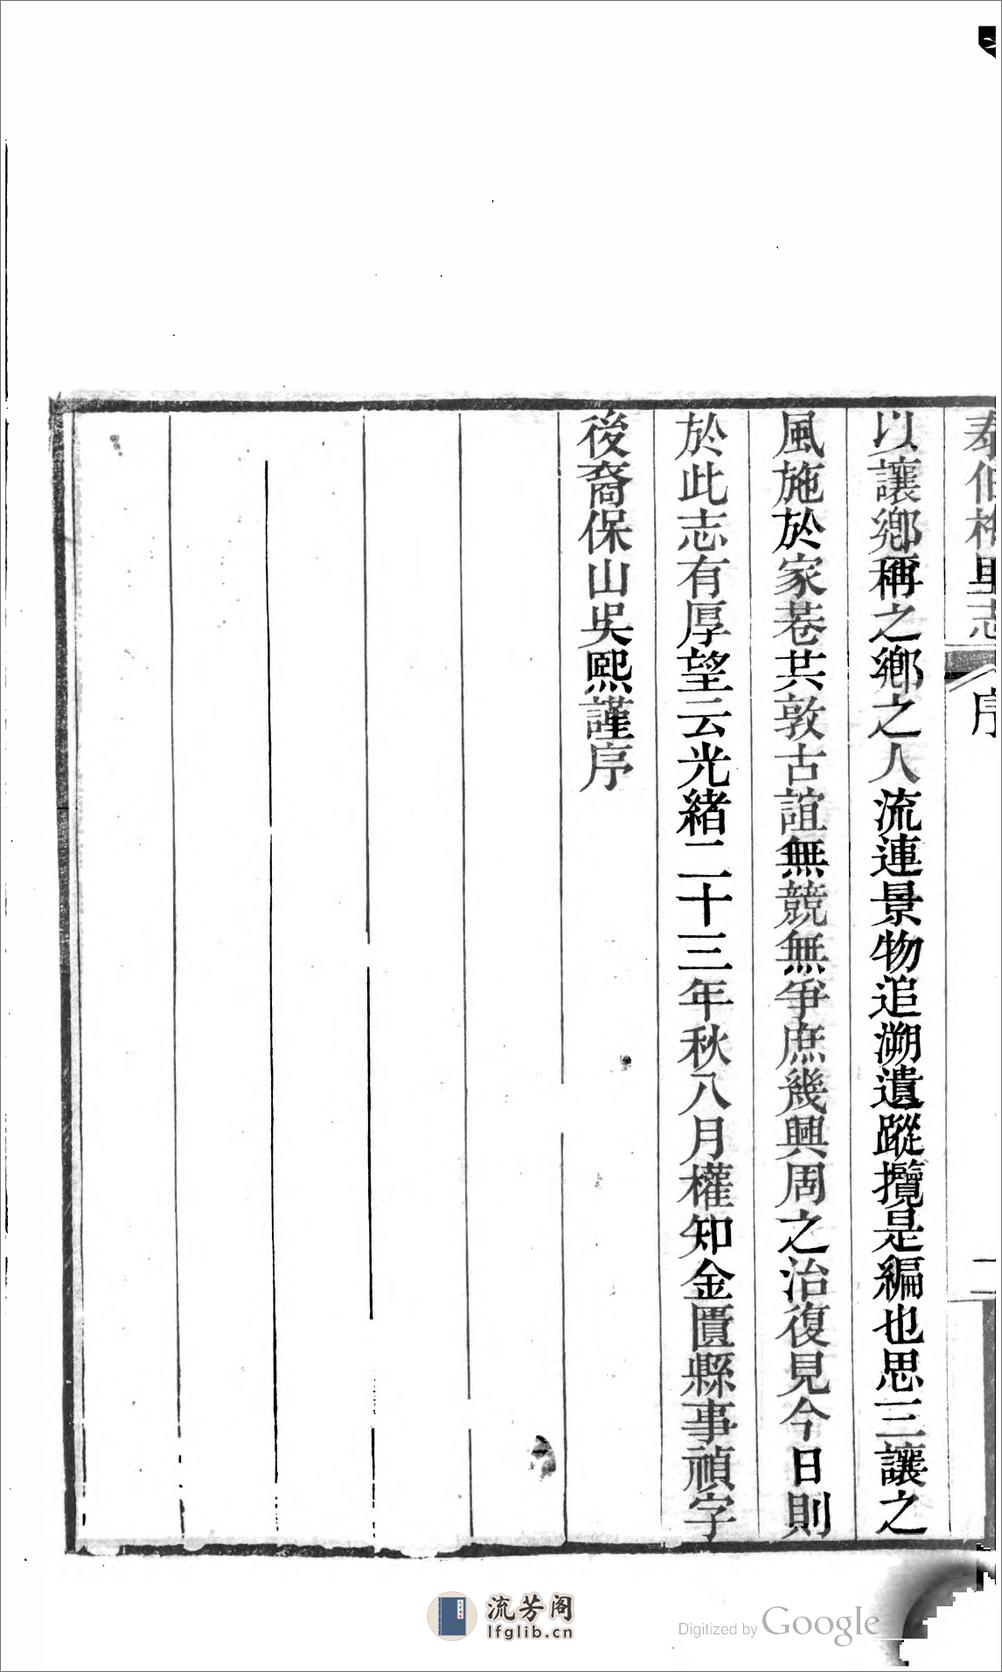 泰伯梅里志
序
二
以讓鄉稱之鄉之人流連景物追溯遺蹤攬是編也思三讓之
風施於家巷共敦古誼無競無爭庶幾興周之治復見今日則
於此志有厚望云光緒二十三年秋八月權知金匱縣事禎字
後裔保山吳熙謹序
流芳阁
lfglib.cn
Digitized by Google